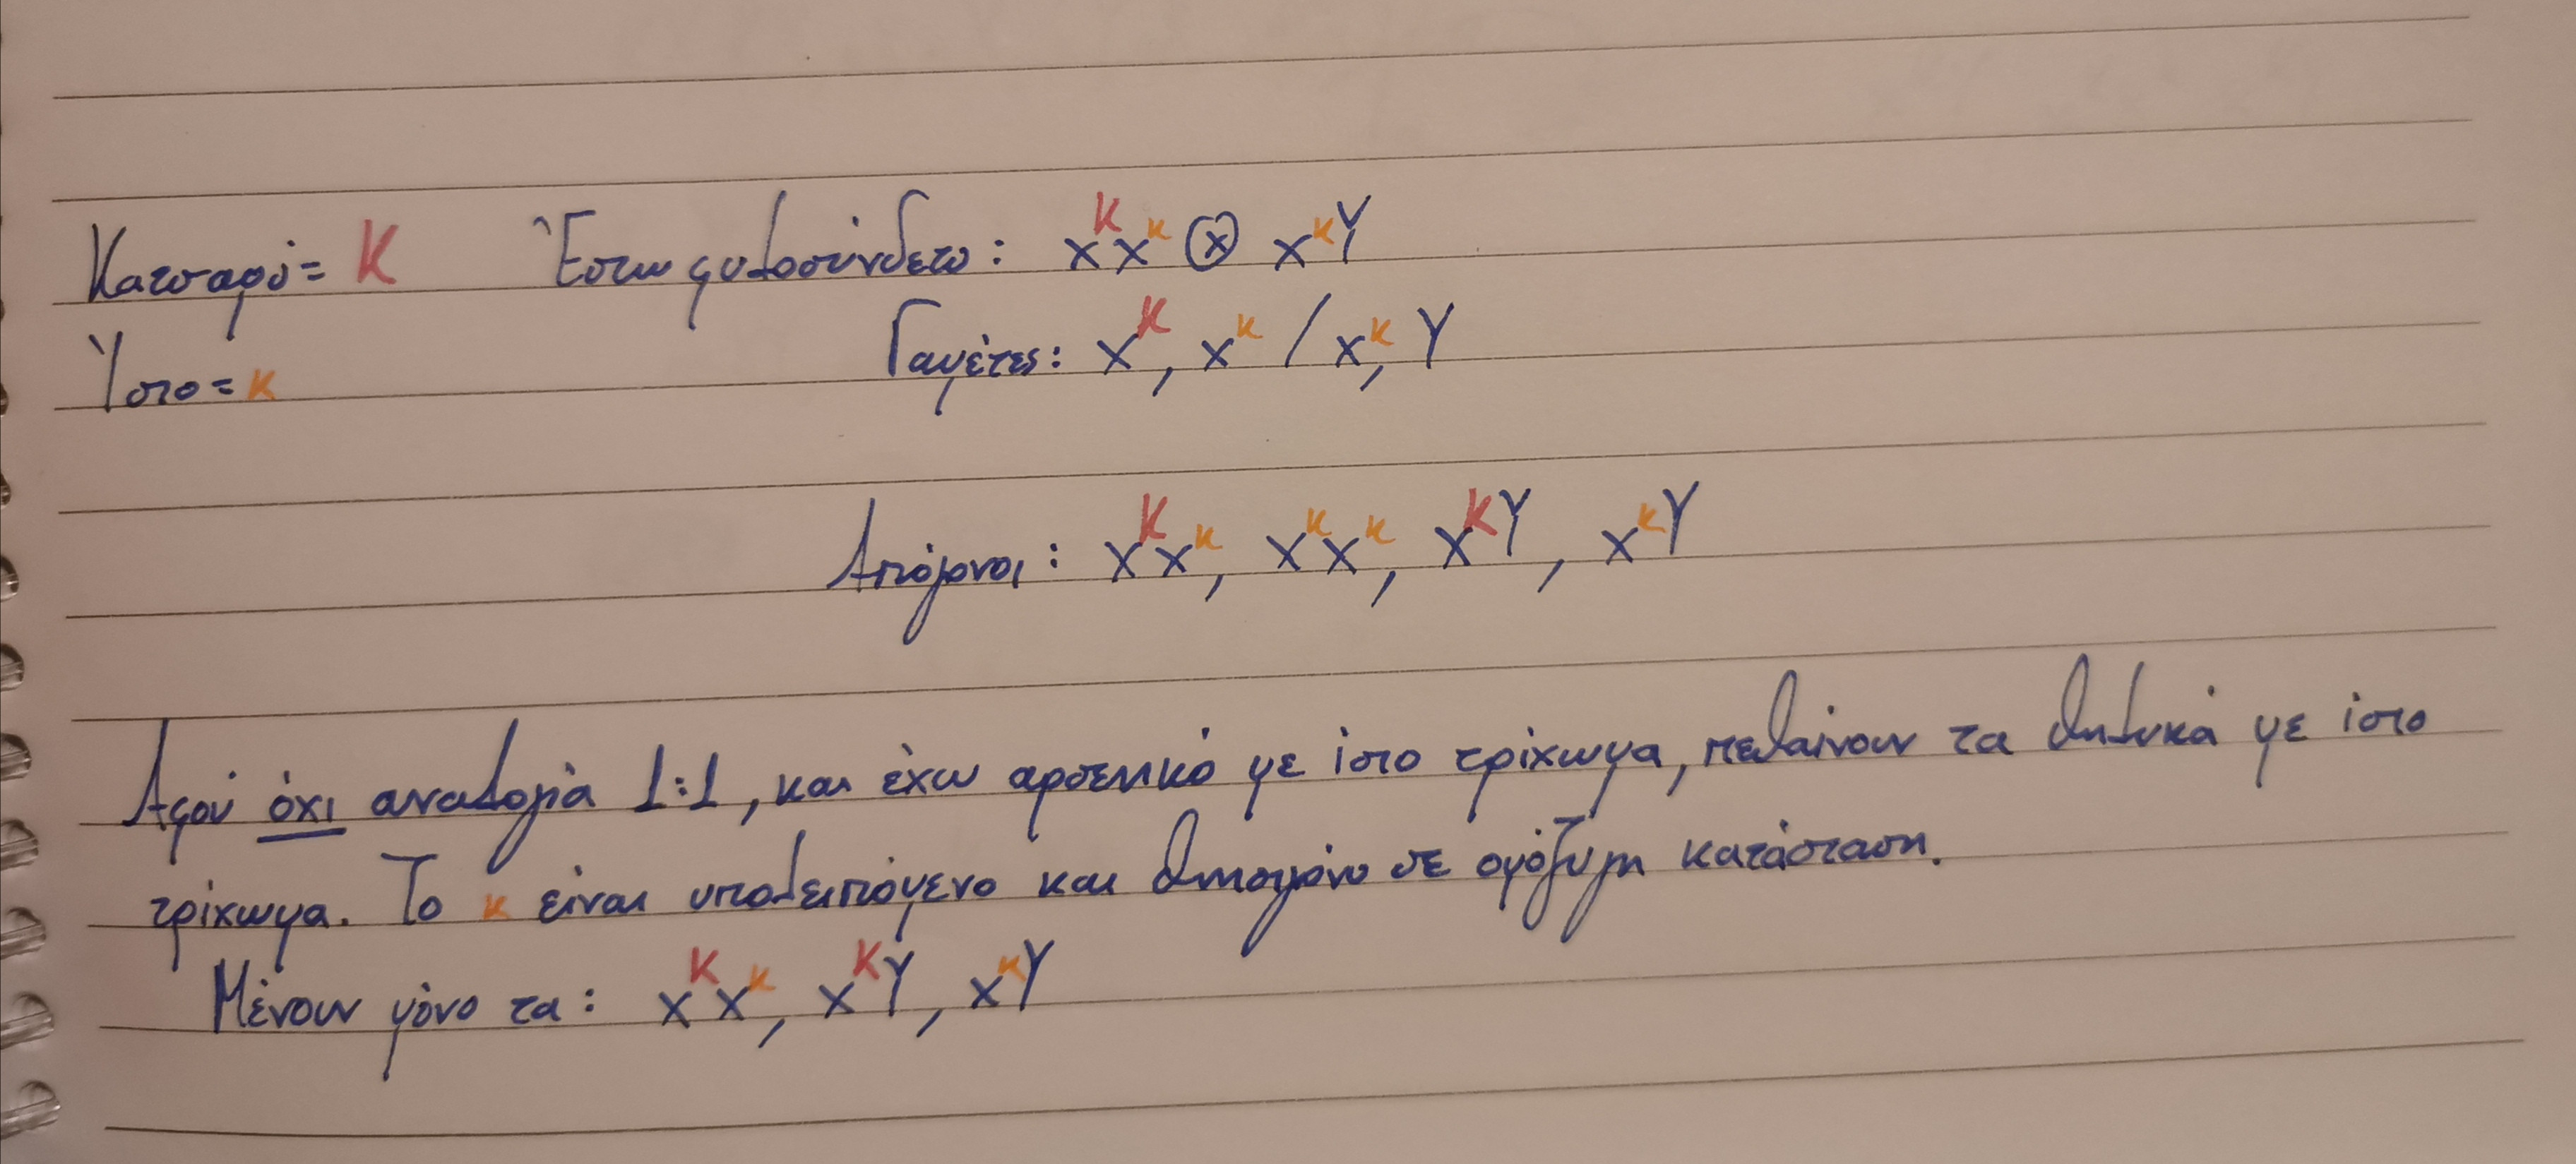 Κατσαρό = Κ Έστω φυλοσύνδετο: xᴷxᵏ ⊗ xᵏY
Ίσιο = κ Γαμέτες: xᴷ, xᵏ / xᵏ, Y
Απόγονοι: xᴷxᵏ, xᵏxᵏ, xᴷY, xᵏY
Αφού όχι αναλογία 1:1, και έχω αρσενικό με ίσιο τρίχωμα, πεθαίνουν τα θηλυκά με ίσιο
τρίχωμα. Το κ είναι υπολειπόμενο και θνησιγόνο σε ομόζυγη κατάσταση.
Μένουν μόνο τα: xᴷxᵏ, xᴷY, xᵏY